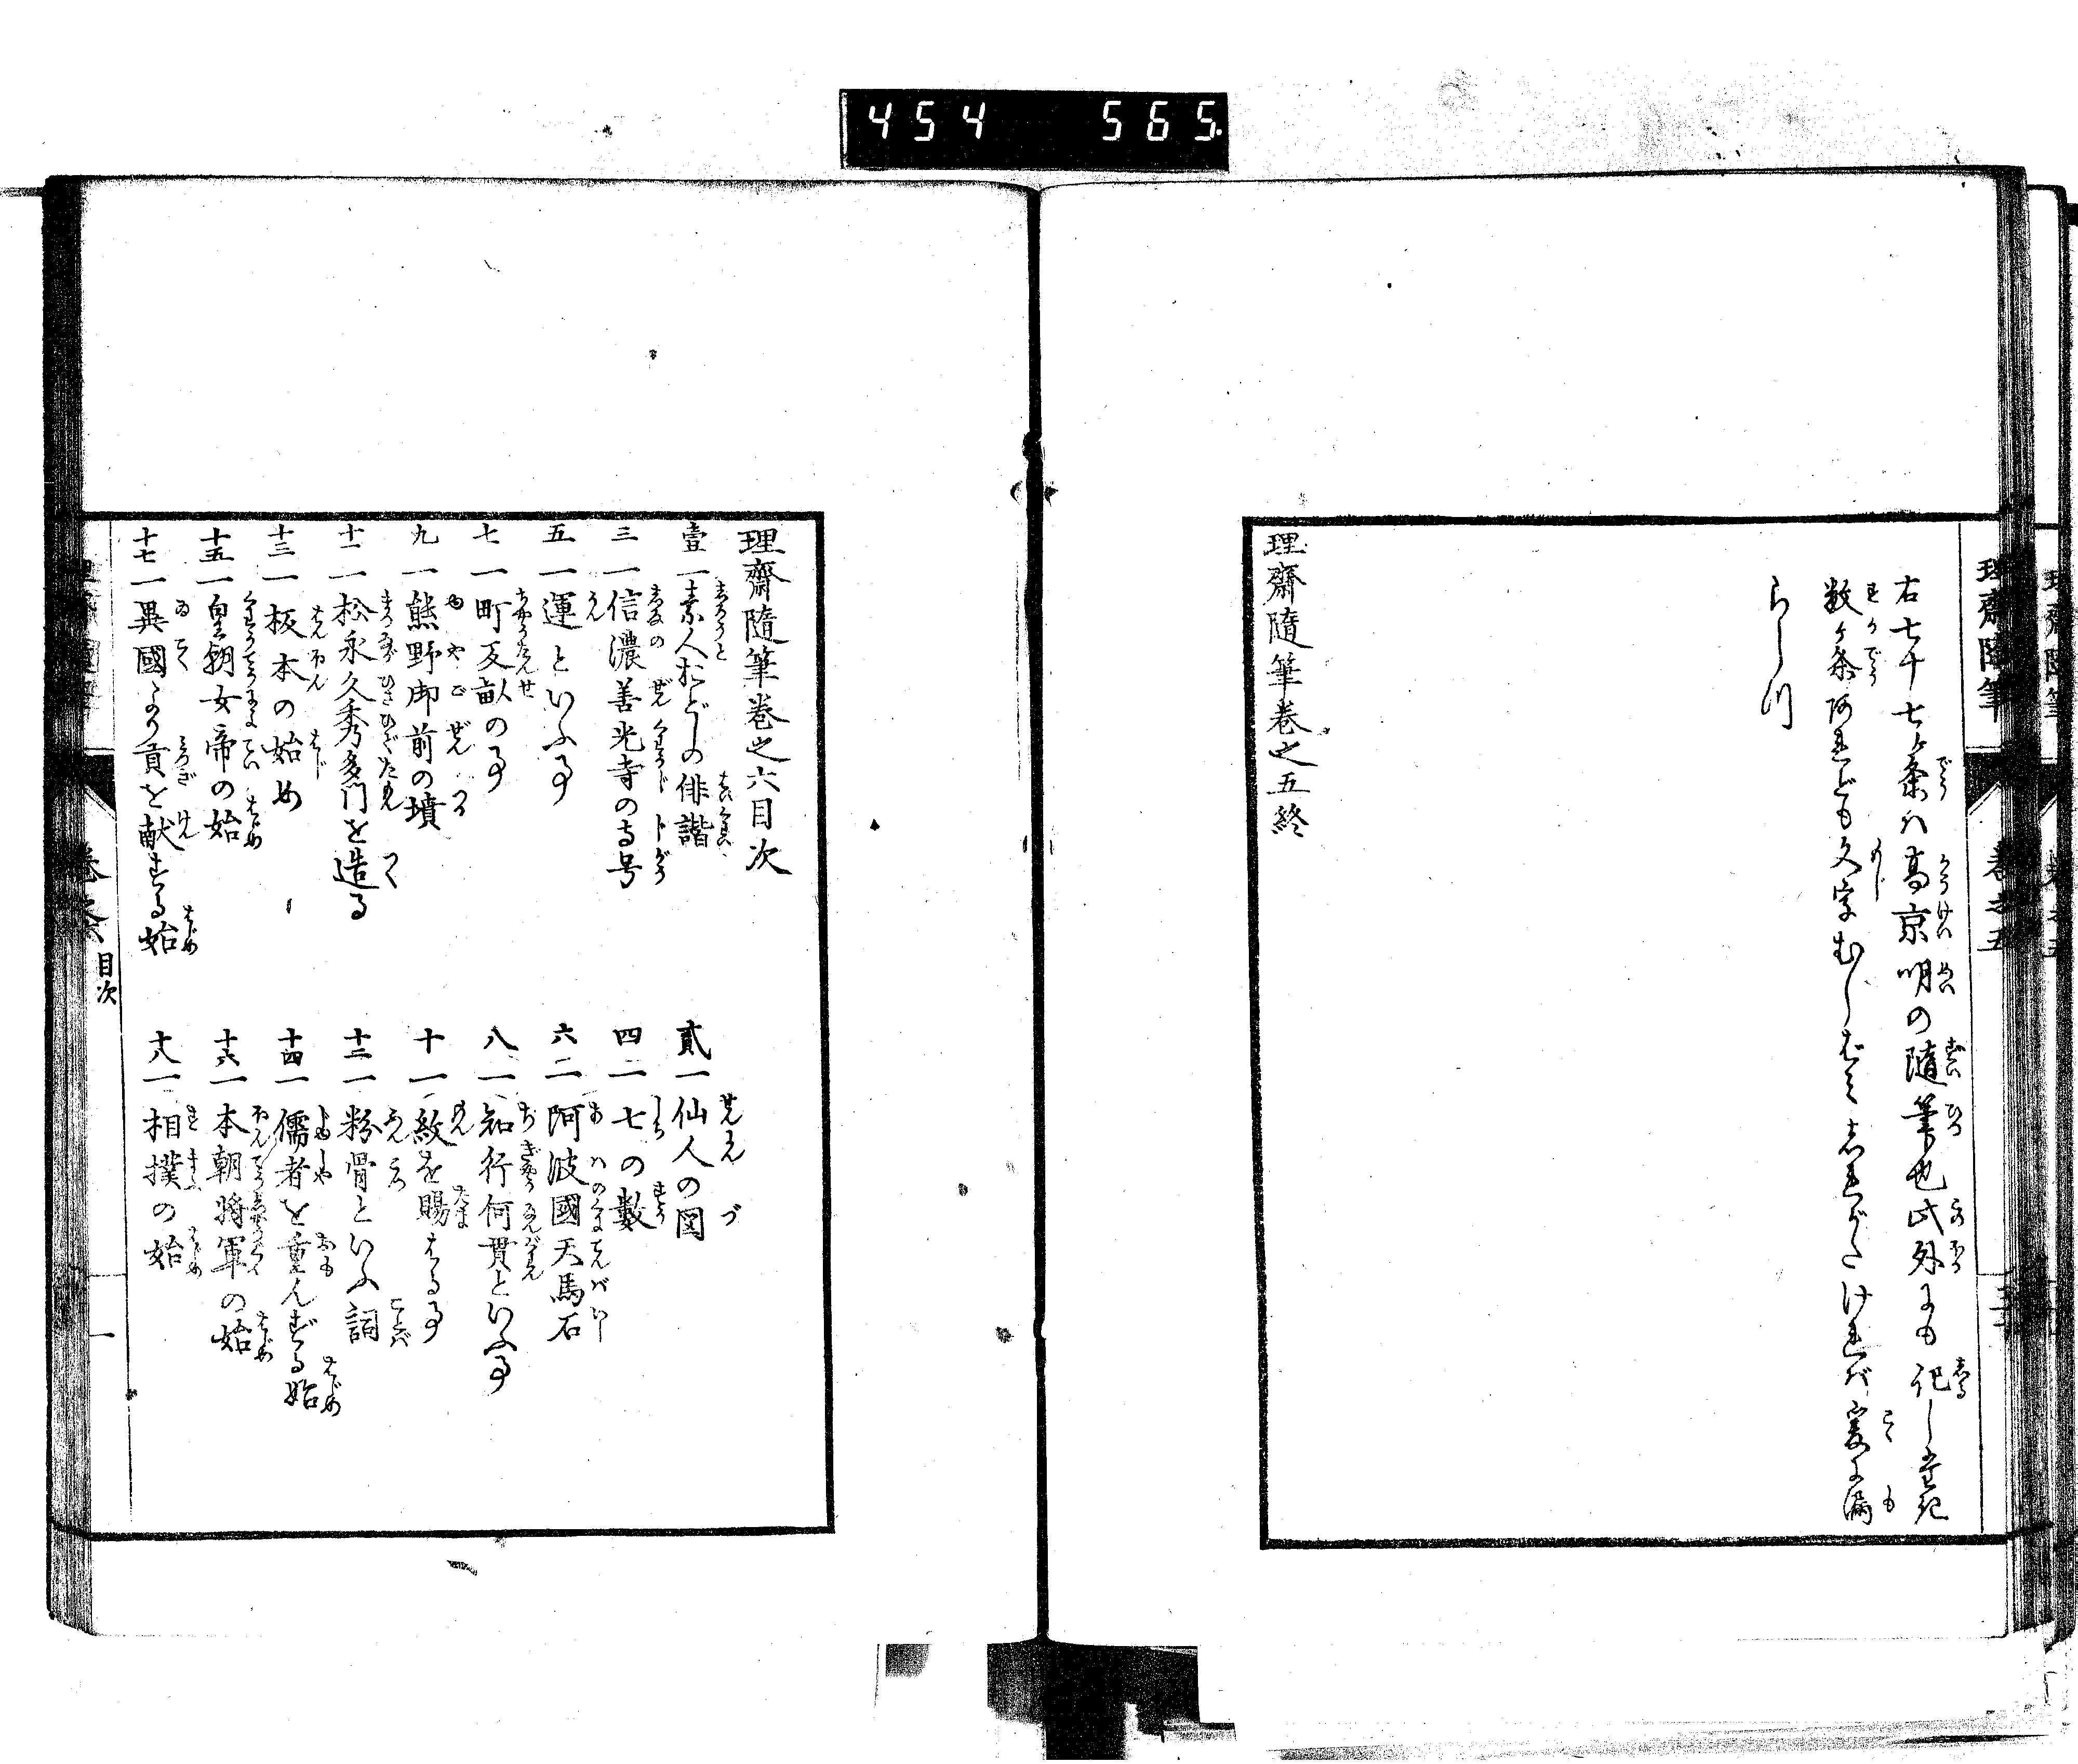 454 565
理齋隨筆
卷之五
右七十七ヶ条ハ高京明の隨筆也此外にも記し置れ
数ヶ条阿れども文字むしばミ志れがたけれバ爰に漏
らしつ
理齋隨筆卷之五終
理齋隨筆卷之六目次
壹一素人おどしの俳諧
貳一仙人の図
三一信濃善光寺の寺号
四一七の數
五一運といふ事
六一阿波國天馬石
七一町反畝の事
八一知行何貫といふ事
九一熊野御前の墳
十一紋を賜はる事
十一一松永久秀多門を造る
十二一粉骨といふ詞
十三一板本の始め
十四一儒者を重んずる始
十五一皇朝女帝の始
十六一本朝将軍の始
十七一異國より貢を献ずる始
十八一相撲の始
目次
一